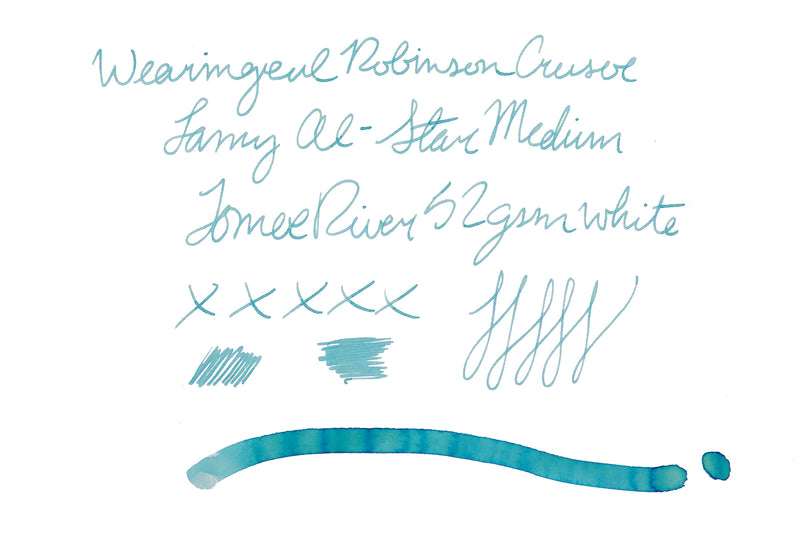 Wearingeul Robinson Crusoe
Lamy Al-Star Medium
Tomoe River 52gsm white
x x x x x